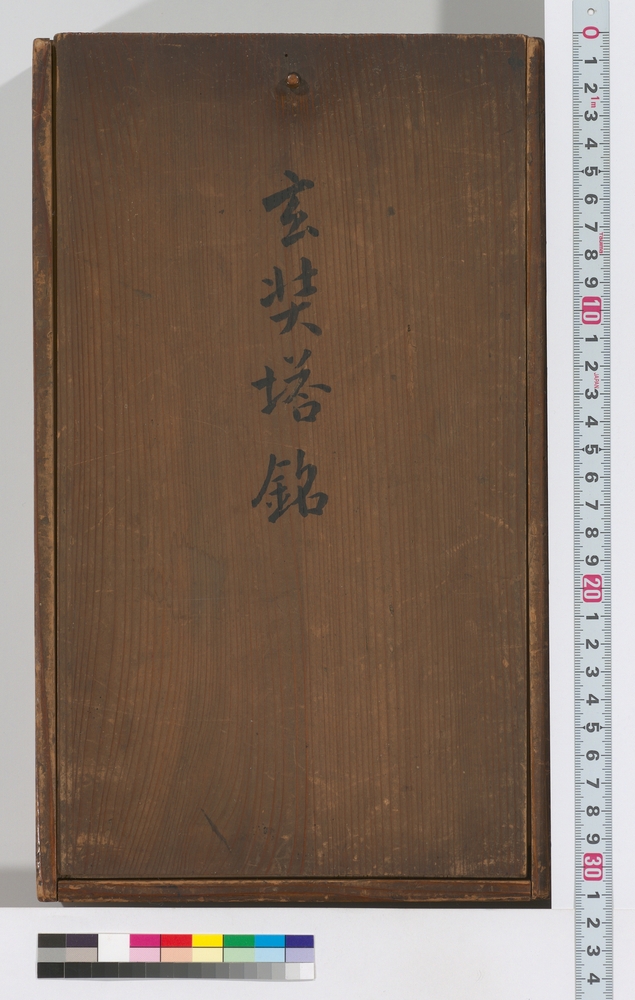 玄奘塔銘
0
1
2
1m
3
4
5
6
7
8
9
10
1
2
JAPAN
3
4
5
6
7
8
9
20
1
2
3
4
5
6
7
8
9
30
1
2
3
4